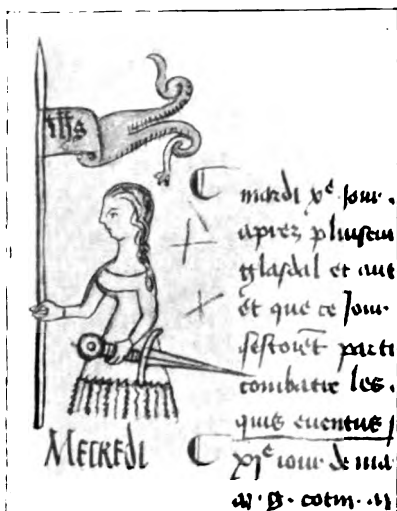 ihs
mardi xe jour
apres plusieu
glasdal et aut
et que ce Jour
sestoiēt parti
combatre les
quis euentus
MECREDI
xje iour de ma